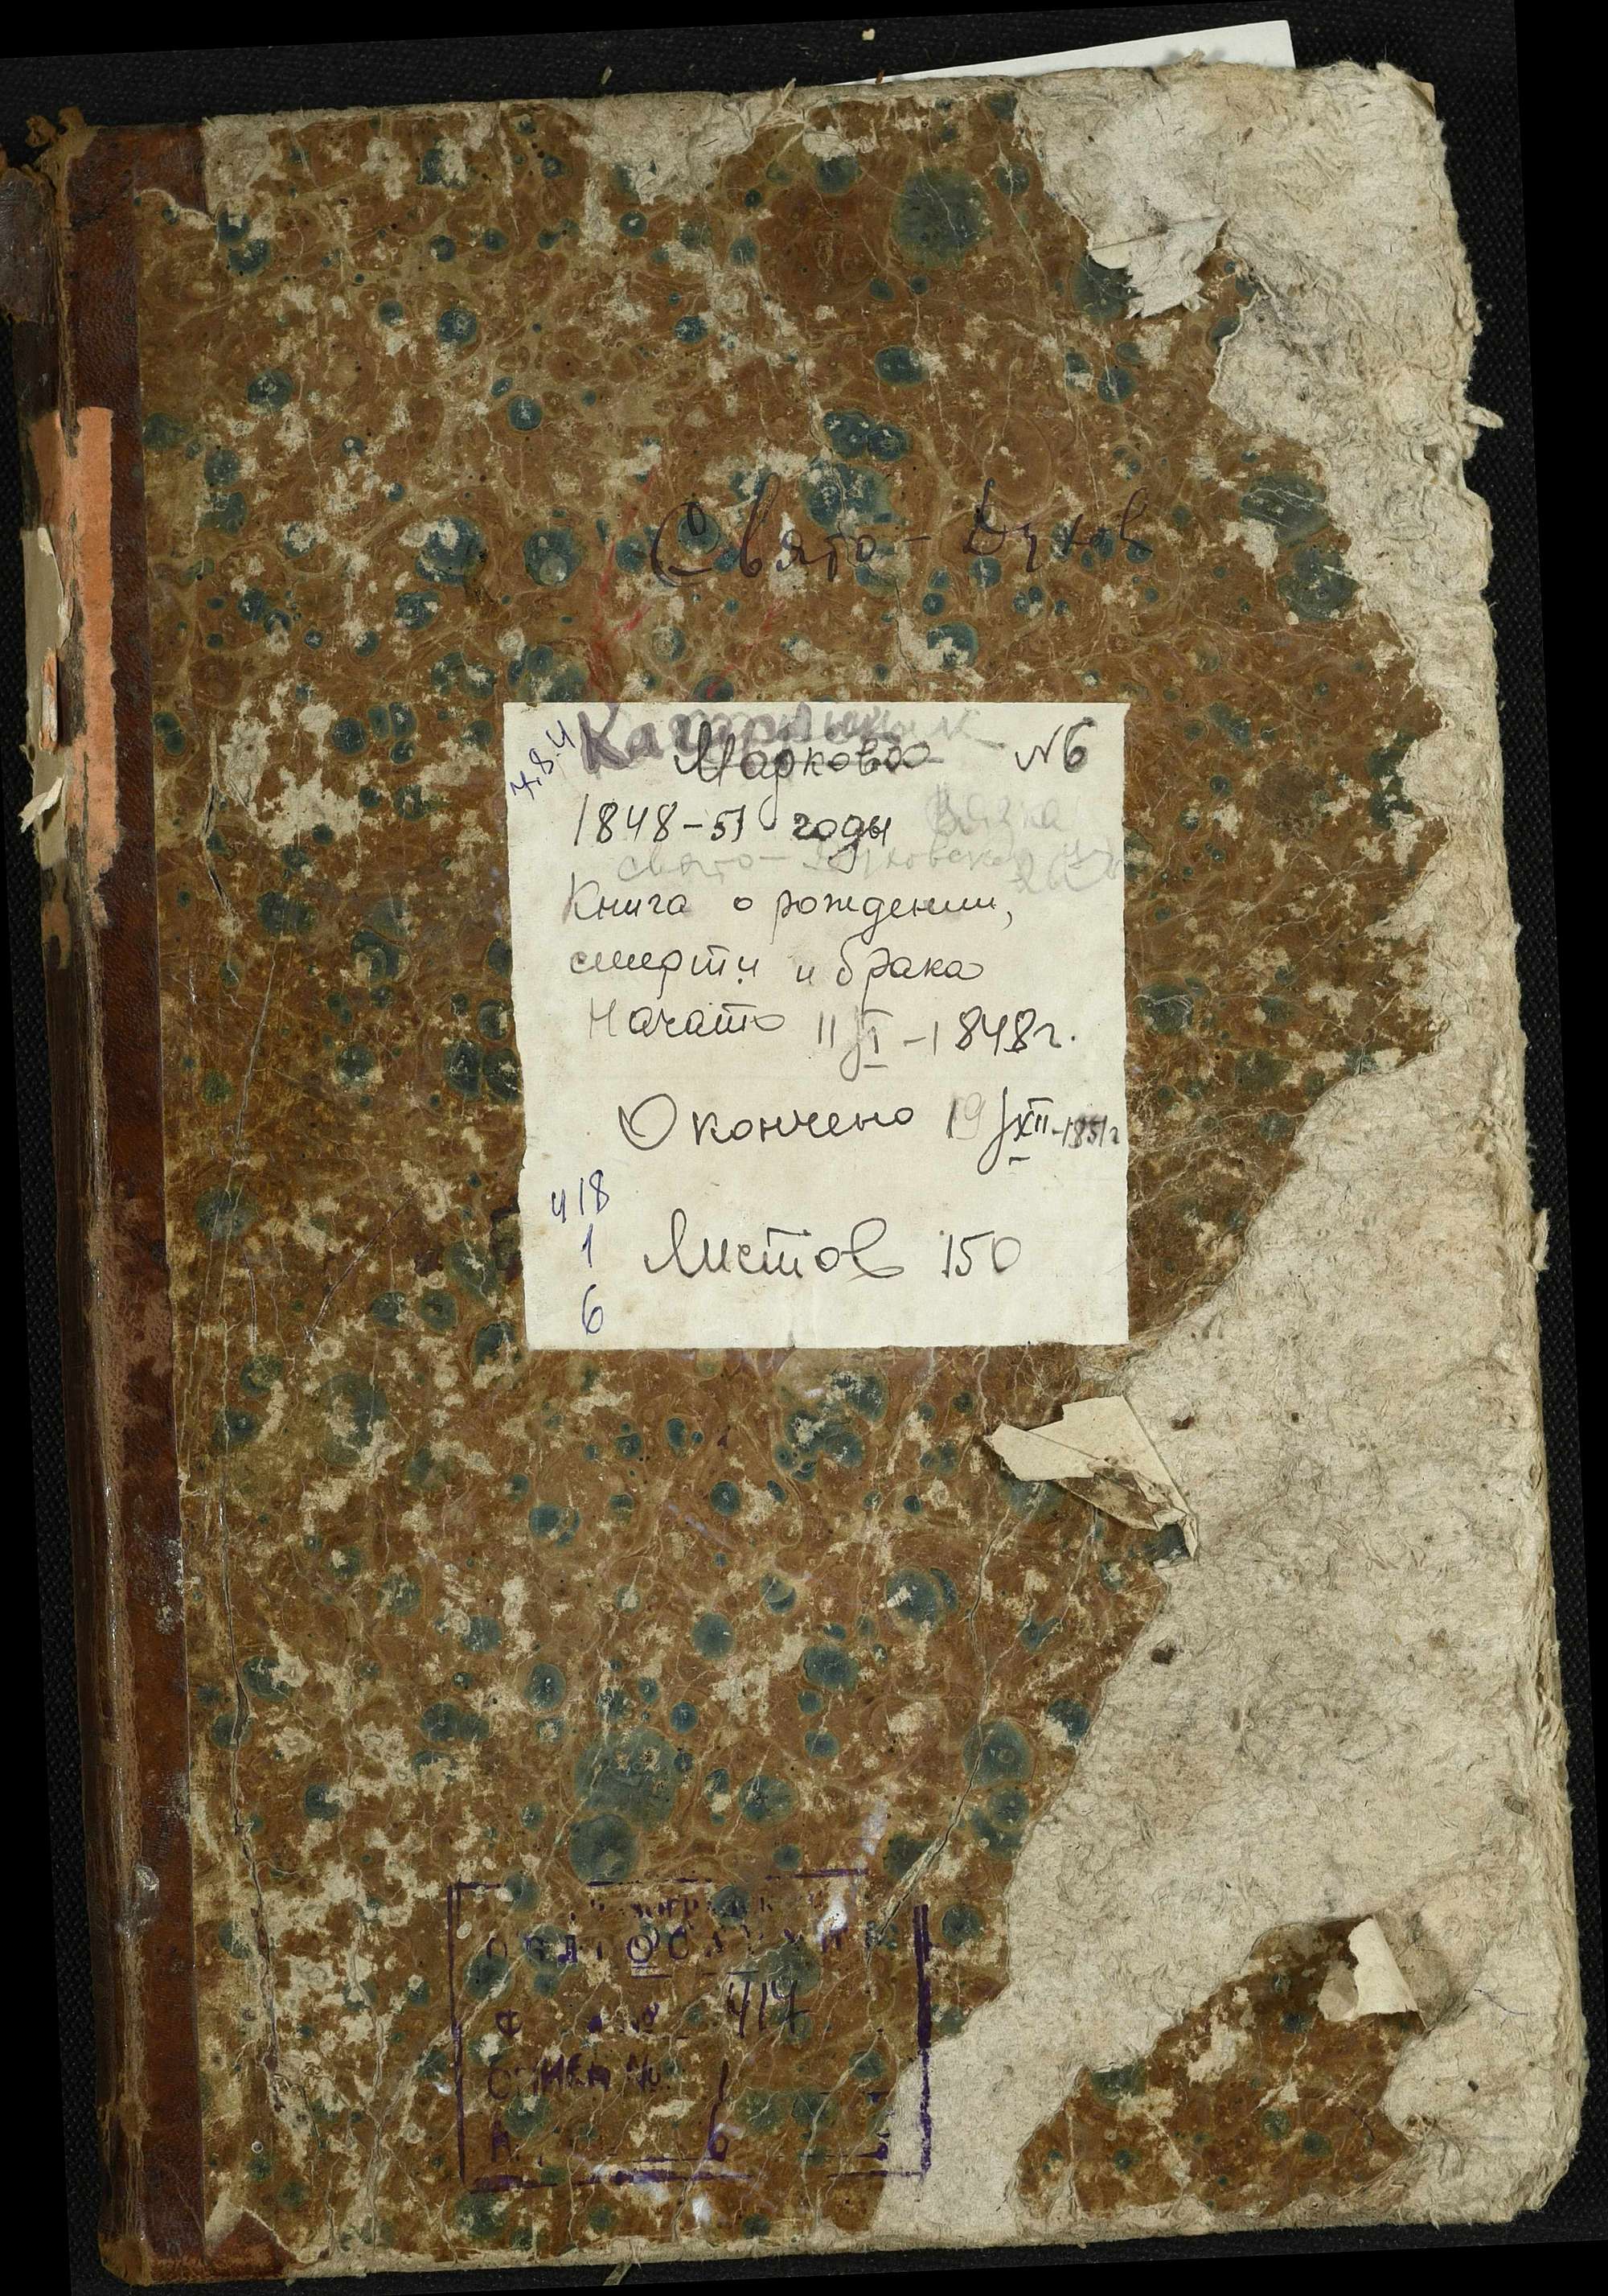 Свято-Духов
Марково №6
1848-51 годы
Свято-Духовская
Книга о рождении,
смерти и брака
Начато 11/I-1848г.
Окончено 19/XII-1851г
418
1
6
Листов 150
ОБЛГОСАРХИВ
Ф № 417
ОПИСЬ № 1
6